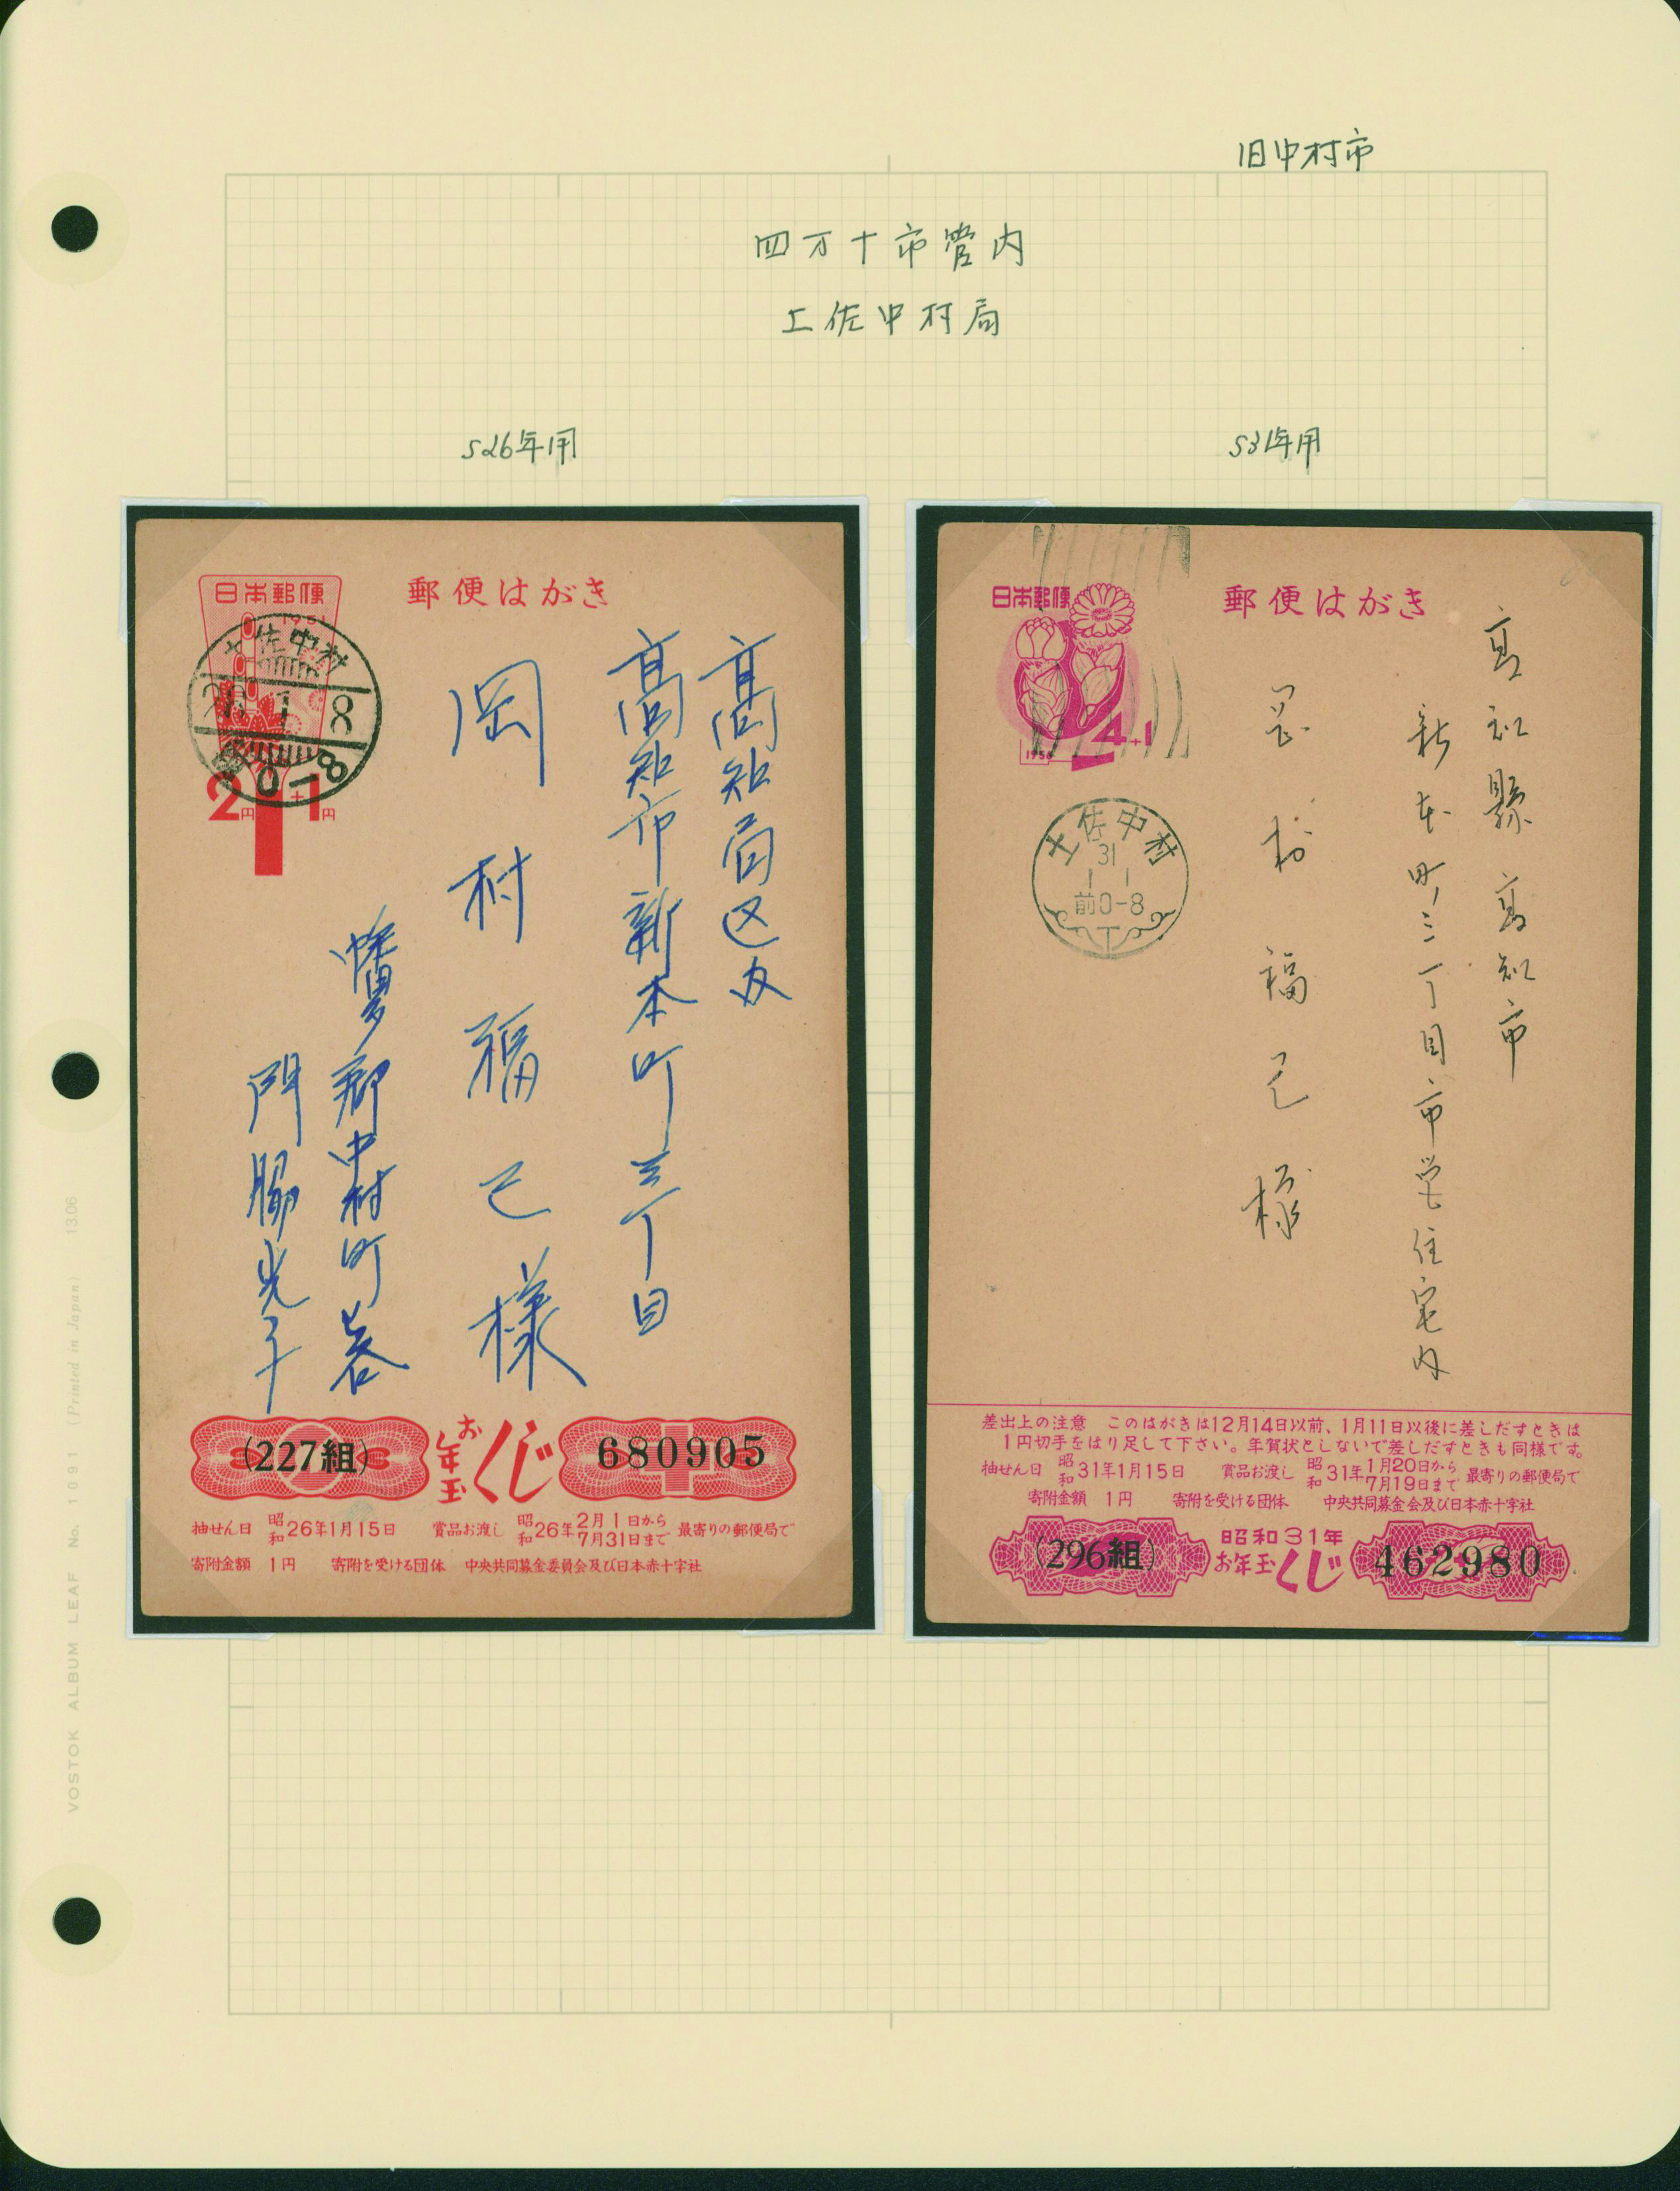 旧中村市
四万十市管内
土佐中村局
S26年用
S31年用
日本郵便
1951
土佐中村
8
0-8
2円+1円
郵便はがき
高知局区内
高知市新本町三丁目
岡村福己様
幡多郡中村町
門脇光子
(227組)
お年玉くじ
680905
抽せん日 昭和26年1月15日 賞品お渡し 昭和26年2月1日から7月31日まで 最寄りの郵便局で
寄附金額 1円 寄附を受ける団体 中央共同募金委員会及び日本赤十字社
日本郵便
4+1
1956
郵便はがき
土佐中村
31
1 1
前0-8
高知縣高知市
新本町三丁目市営住宅内
岡村福己様
差出上の注意 このはがきは12月14日以前、1月11日以後に差しだすときは
1円切手をはり足して下さい。年賀状としないで差しだすときも同様です。
抽せん日 昭和31年1月15日 賞品お渡し 昭和31年1月20日から7月19日まで 最寄りの郵便局で
寄附金額 1円 寄附を受ける団体 中央共同募金会及び日本赤十字社
(296組)
昭和31年
お年玉くじ
462980
VOSTOK ALBUM LEAF No. 1091 (Printed in Japan) 13.06